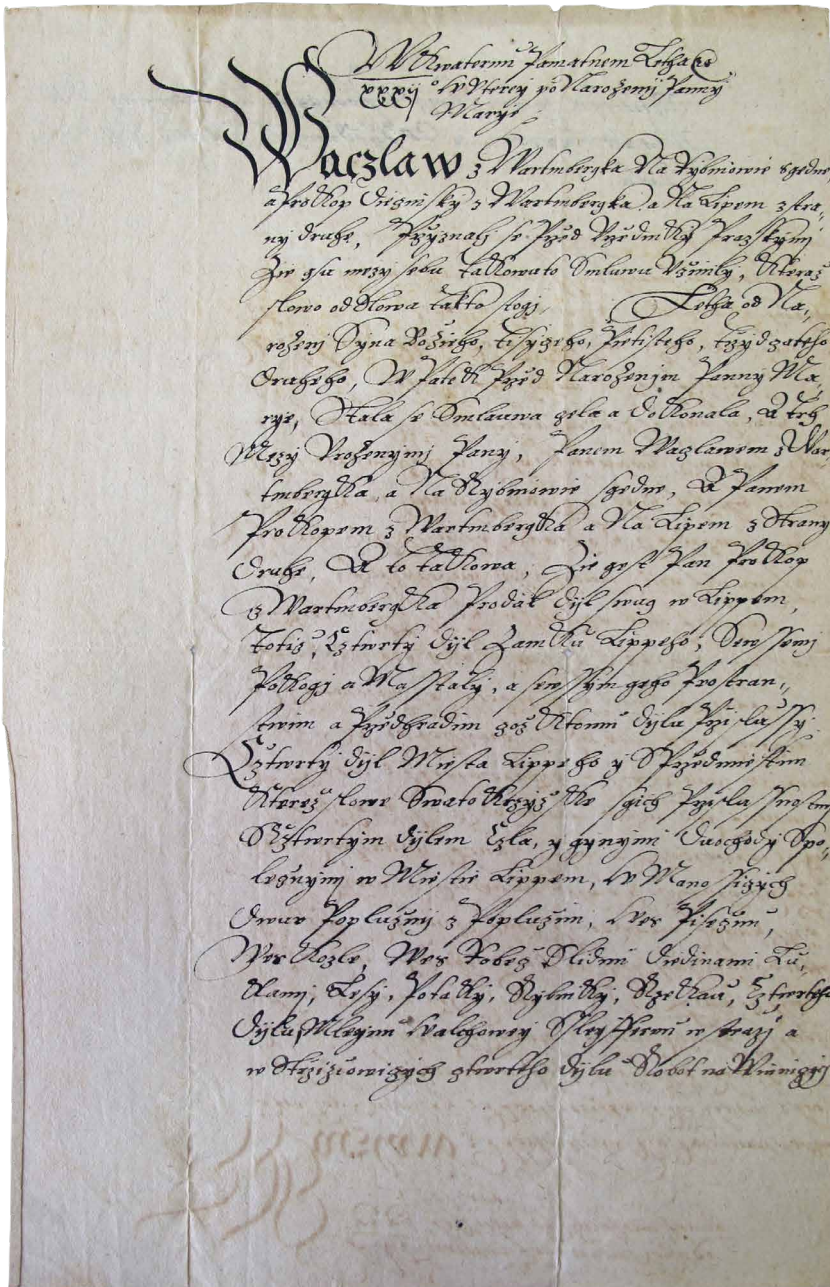 W Kwaternu Pamatnem Letha
xxxij W Uterey po Narozenij Panny
Marye
Waczlaw z Wartmbergka Na Rybniowie sgedne
a Prokop Diezinsky z Wartmbergka a Na Lipem z stra„
ny druhe, Przyznalj se Przed Urzednikij Prazskymj
Zie gsu mezy sebu takowato Smluwu Uczinily, Kteraz
slowo od slowa takto stogj. Letha od Na„
rozenj Syna Bozieho, tisyczeho, Pietisteho, trzydczateho
druheho, W Patek Przed Narozenjm Panny Ma„
rye, Stala se Smlauwa czela a dokonala, A trh
Mezy Urozenymj Pany, Panem Waczlawem z War„
tmbergka, a Na Rybniowie sgedne, A Panem
Prokopem z Wartmbergka a Na Lipem z Strany
druhe, A to takowa, Zie gest Pan Prokop
z Wartmbergka Prodal dijl swug w Lippem,
totiz, Cztwrty dijl Zamku Lippeho, Sewssemj
Pokogj a Masstalij, a sewssym geho Prostran„
stwim a Przedhradim coz k tomu dijlu Przislussy
Cztwrty dijl Miesta Lippeho y S Przedmiestim
Kterez slowe Swatokrzyzske sgich Przislussnostmj
S Cztwrtym dijlem Cla, y gynymi Duochody Spo„
lecznymj w Miestie Lippem, W Manossiczych
dwur Popluznj z Popluzim, Wes Pisecznu,
Wes Kozle, Wes S lidmi Diedinami Lu„
kamj, Lesy, Potoky, Rybniky, Rzekau, Cztwrteho
dijlu Mleynu Walchowey Sleyffernu w strazj a
w cztwrteho dijlu Robot na Winniczy